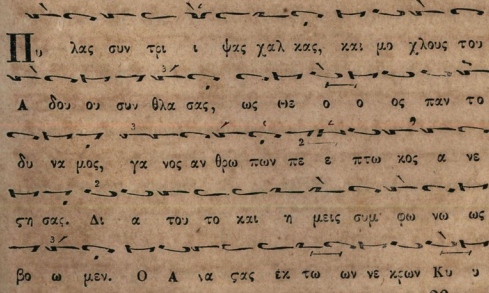 Πυ λας συν τρι ι ψας χαλ κας, και μο χλους του
Α δου ου συν θλα σας, ως Θε ο ο ος παν το
δυ να μος, γα νος αν θρω πων πε ε πτω κος α νε
ϛη σας. Δι α του το και η μεις συμ φω νω ως
βο ω μεν. Ο Α να ϛας έκ τω ων νε κρων Κυ υ